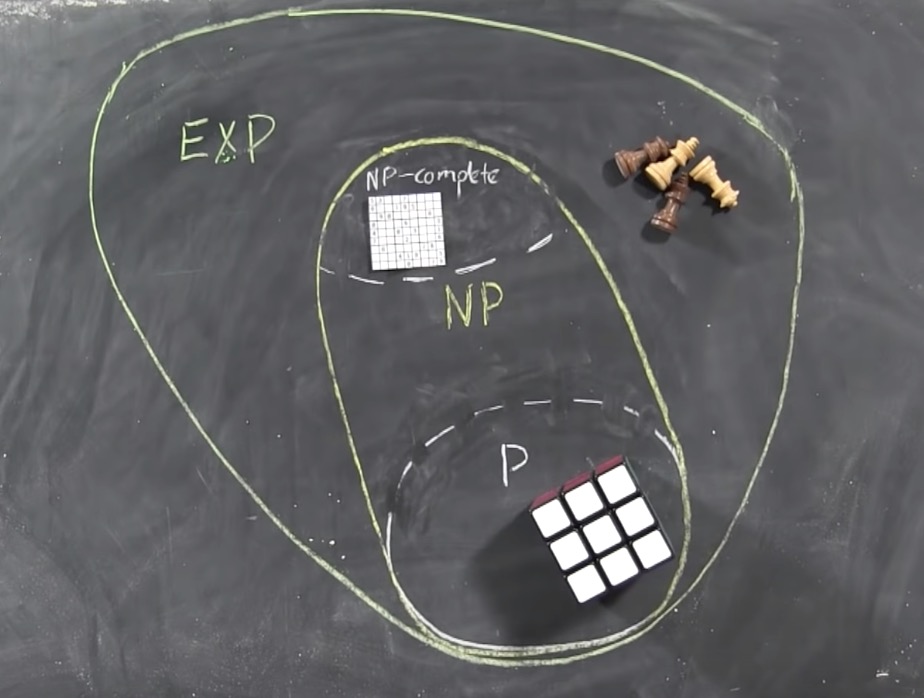 EXP
NP-complete
NP
P